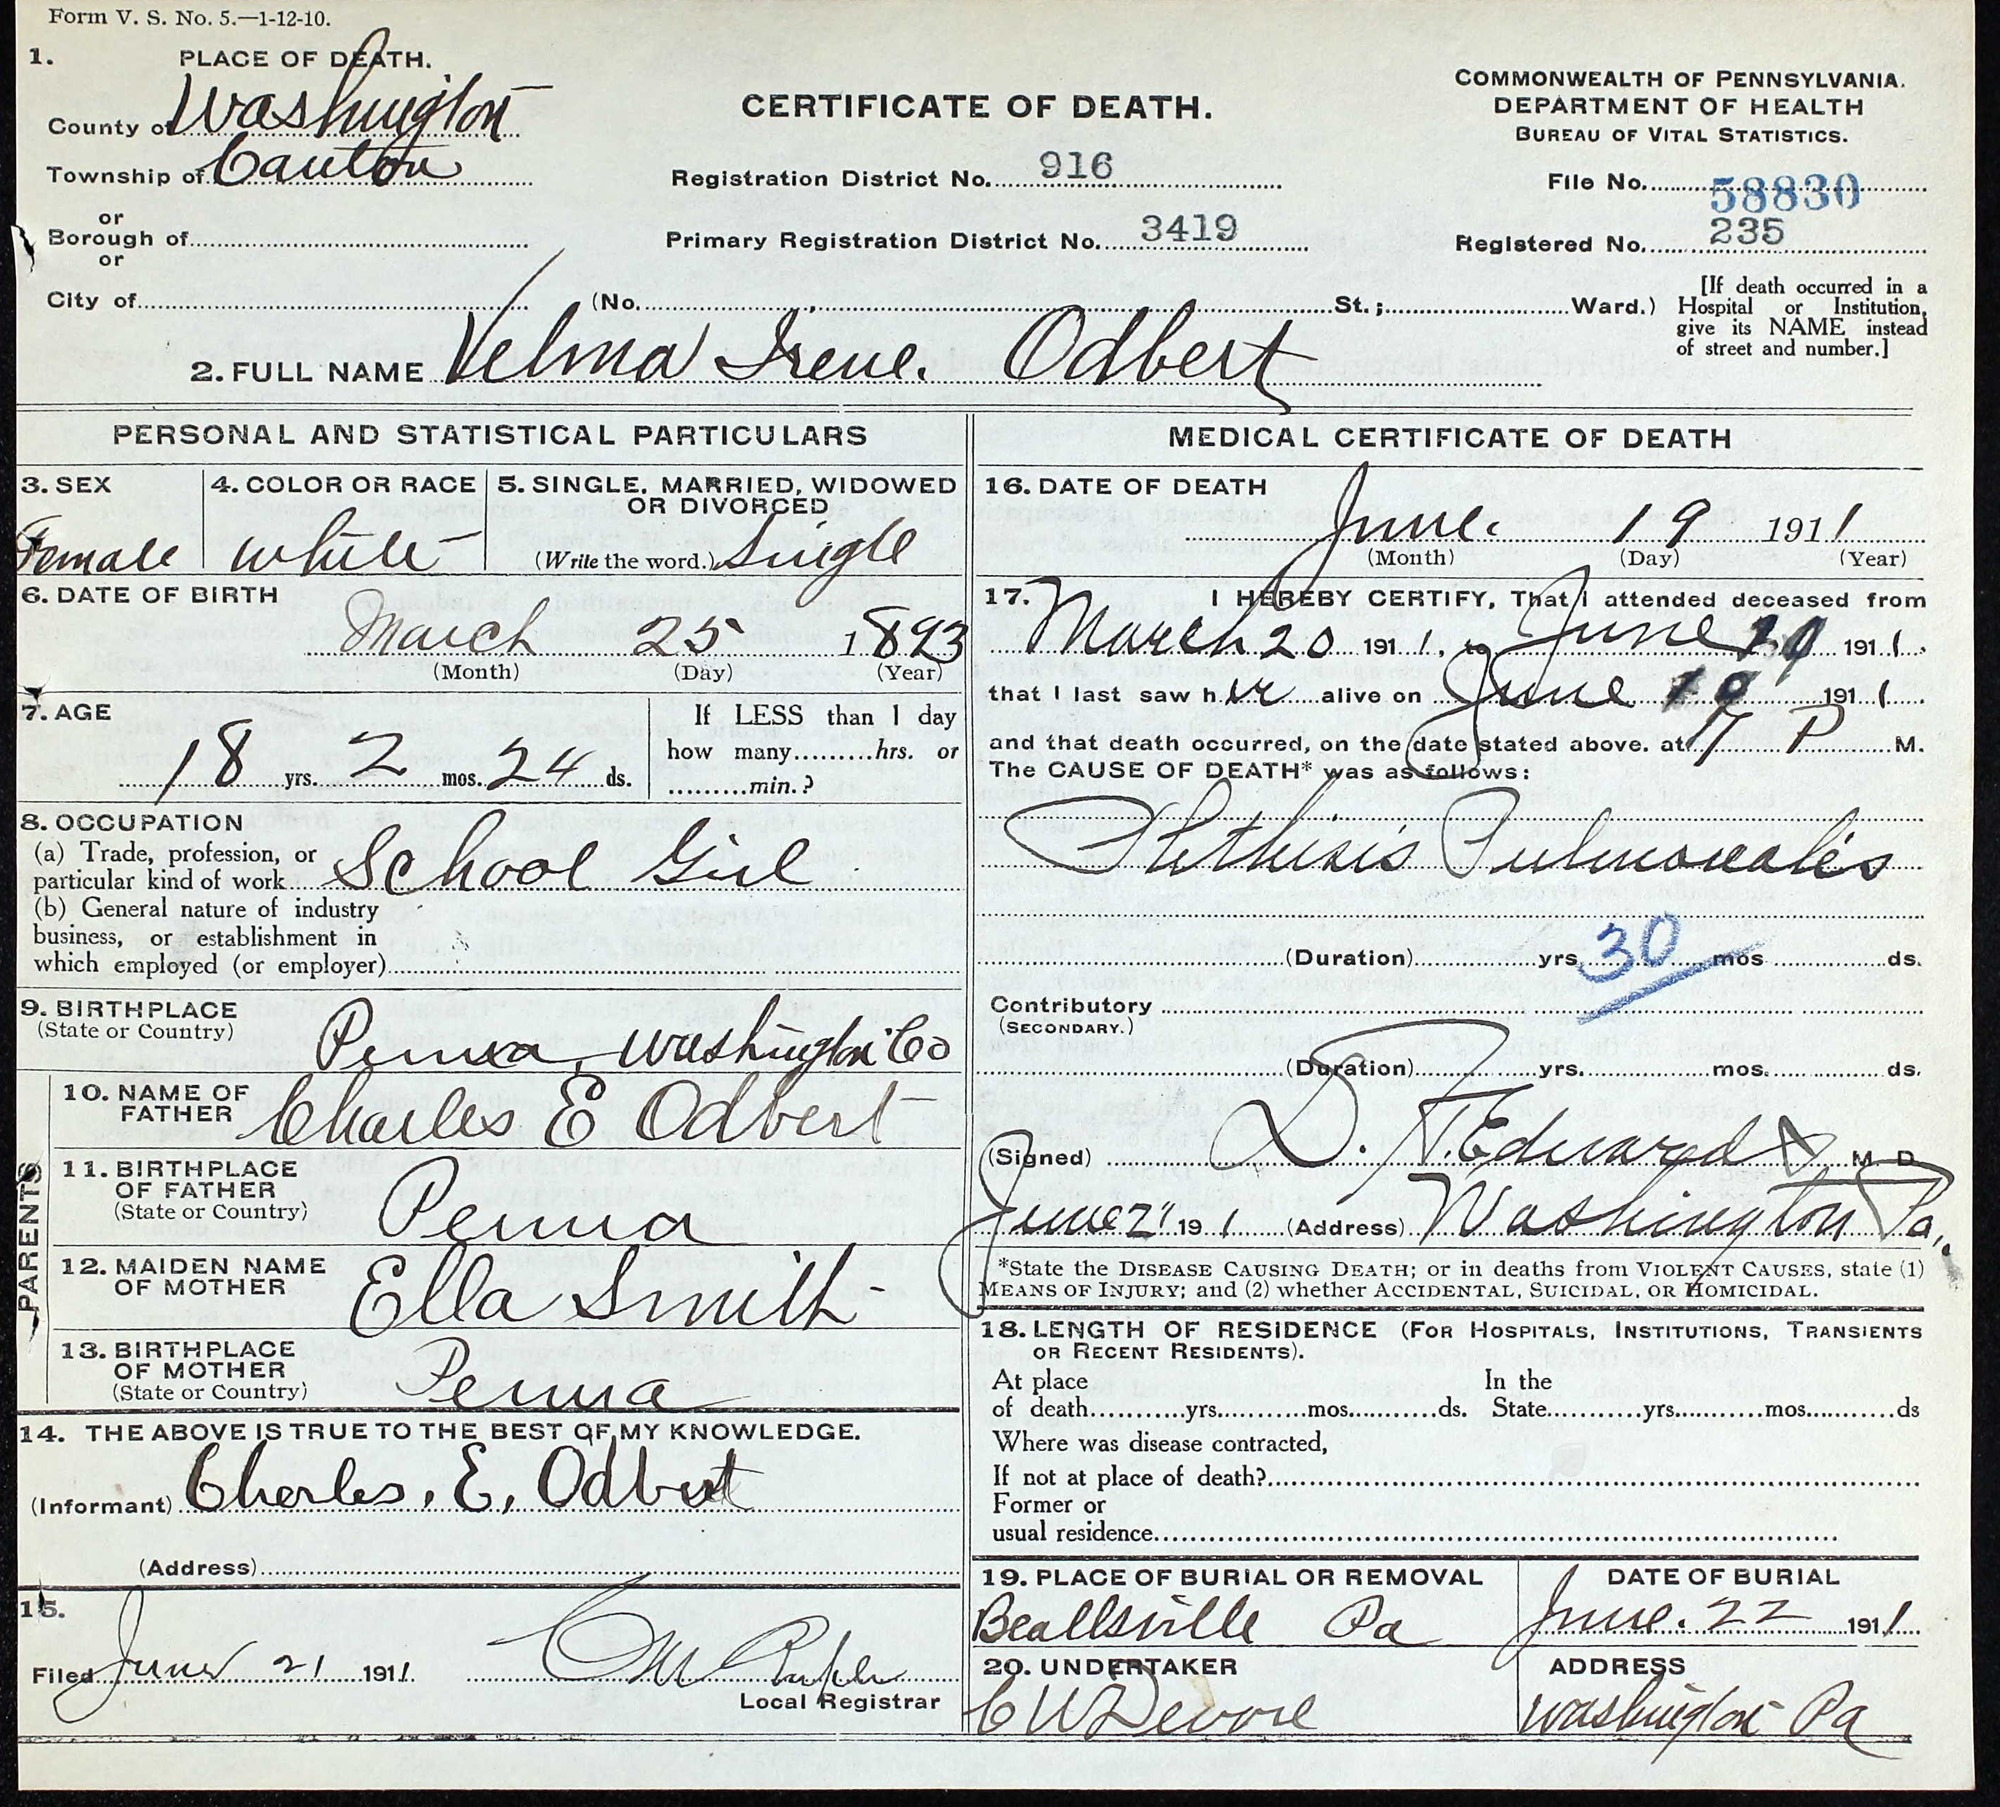 Form V. S. No. 5.—1-12-10.
1. PLACE OF DEATH.
County of Washington
Township of Canton
or
Borough of
or
City of
CERTIFICATE OF DEATH.
Registration District No. 916
Primary Registration District No. 3419
COMMONWEALTH OF PENNSYLVANIA.
DEPARTMENT OF HEALTH
BUREAU OF VITAL STATISTICS.
File No. 58830
Registered No. 235
(No. , St.; Ward.)
[If death occurred in a
Hospital or Institution,
give its NAME instead
of street and number.]
2. FULL NAME Velma Irene. Odbert
PERSONAL AND STATISTICAL PARTICULARS
3. SEX
Female
4. COLOR OR RACE
white
5. SINGLE, MARRIED, WIDOWED
OR DIVORCED
(Write the word.) Single
6. DATE OF BIRTH
March 25 1893
(Month) (Day) (Year)
7. AGE
18 yrs. 2 mos. 24 ds.
If LESS than 1 day
how many hrs. or
min.?
8. OCCUPATION
(a) Trade, profession, or
particular kind of work School Girl
(b) General nature of industry
business, or establishment in
which employed (or employer)
9. BIRTHPLACE
(State or Country)
Penna, Washington Co
PARENTS
10. NAME OF
FATHER Charles E Odbert
11. BIRTHPLACE
OF FATHER
(State or Country) Penna
12. MAIDEN NAME
OF MOTHER Ella Smith
13. BIRTHPLACE
OF MOTHER
(State or Country) Penna
14. THE ABOVE IS TRUE TO THE BEST OF MY KNOWLEDGE.
(Informant) Charles. E. Odbert
(Address)
15.
Filed June 21 1911
Local Registrar
MEDICAL CERTIFICATE OF DEATH
16. DATE OF DEATH
June. 19 1911
(Month) (Day) (Year)
17. I HEREBY CERTIFY, That I attended deceased from
March 20 1911, to June 1911.
that I last saw her alive on June 1911.
and that death occurred, on the date stated above. at 7 P M.
The CAUSE OF DEATH* was as follows:
Phthisis Pulmonalis
(Duration) yrs. 30 mos ds.
Contributory
(SECONDARY.)
(Duration) yrs. mos. ds.
(Signed) Edwards M. D.
June 21 191 (Address) Washington Pa.
*State the DISEASE CAUSING DEATH; or in deaths from VIOLENT CAUSES, state (1)
MEANS OF INJURY; and (2) whether ACCIDENTAL, SUICIDAL, OR HOMICIDAL.
18. LENGTH OF RESIDENCE (FOR HOSPITALS, INSTITUTIONS, TRANSIENTS
OR RECENT RESIDENTS).
At place In the
of death yrs. mos. ds. State yrs. mos. ds
Where was disease contracted,
If not at place of death?
Former or
usual residence
19. PLACE OF BURIAL OR REMOVAL
Beallsville Pa
DATE OF BURIAL
June. 22 1911
20. UNDERTAKER
C W Devore
ADDRESS
Washington Pa